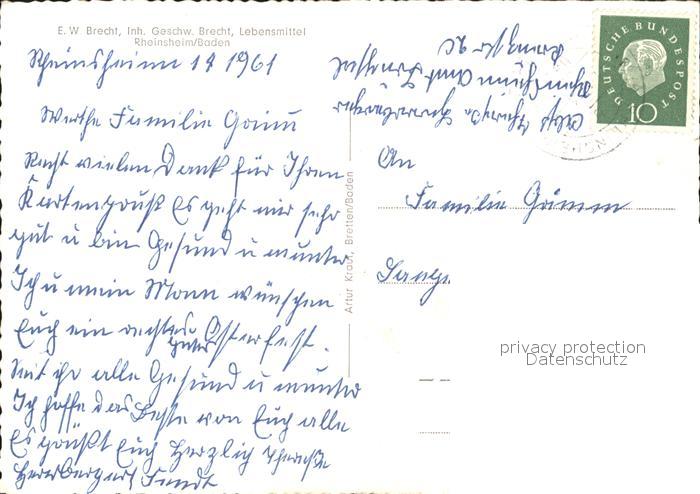 E. W. Brecht, Inh. Geschw. Brecht, Lebensmittel
Rheinsheim/Baden
Rheinsheim 1961
Werthe Familie Grimm
Recht vielen Dank für Ihren
Kartengruß Es geht mir sehr
gut u bin Gesund u munter
Ich u mein Mann wünschen
Euch ein rechtes Osterfest.
gutes
Seit ihr alle Gesund u munter
Ich hoffe das Beste von Euch alle
Es grüßt Euch Herzlich
Artur Kraut, Bretten/Baden
DEUTSCHE BUNDESPOST
10
An
Familie Grimm
privacy protection
Datenschutz